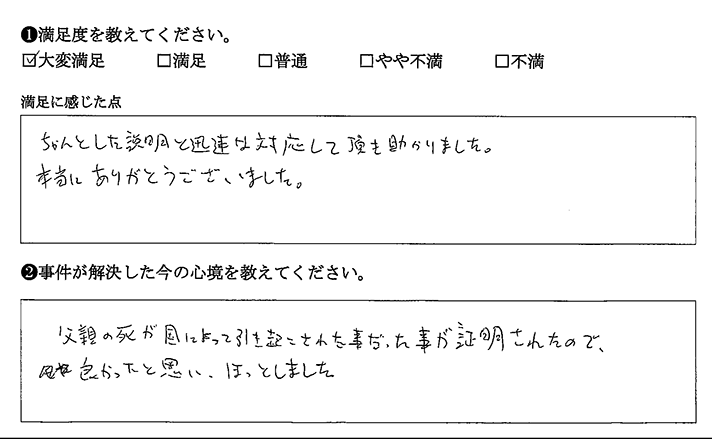 ❶満足度を教えてください。
☑大変満足 □満足 □普通 □やや不満 □不満
満足に感じた点
ちゃんとした説明と迅速な対応して頂き助かりました。
本当にありがとうございました。
❷事件が解決した今の心境を教えてください。
父親の死が国によって引き起こされた事だった事が証明されたので、
良かったと思い、ほっとしました